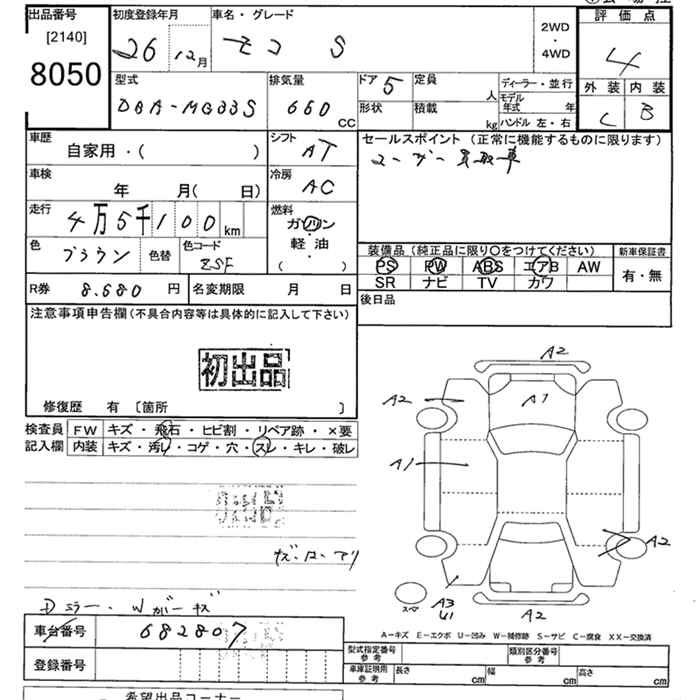 出品番号 初度登録年月 車名・グレード 2WD・4WD 評価点
[2140]
8050 26 12月 モコ S 4
型式 排気量 ドア 5 定員 人 ディーラー・並行 外装 内装
DBA-MG33S 660 CC 形状 積載 kg モデル年式 年 ハンドル 左・右 C B
車歴 シフト セールスポイント (正常に機能するものに限ります)
自家用・( ) AT ユーザー買取車
車検 年 月( 日) 冷房 AC
走行 4万5千100km 燃料 ガソリン・軽油・( )
色 ブラウン 色替 色コード ZSF
装備品 (純正品に限り○をつけてください) 新車保証書
PS PW ABS エアB AW 有・無
SR ナビ TV カワ
R券 8.680 円 名変期限 月 日 後日品
注意事項申告欄 (不具合内容等は具体的に記入して下さい)
初出品
修復歴 有 〔箇所 〕
検査員 FW キズ・飛石・ヒビ割・リペア跡・×要
記入欄 内装 キズ・汚レ・コゲ・穴・スレ・キレ・破レ
A2
A2 A1
A1
A2
スペア A3 U1 A2
Dミラー・Wガーキズ
A-キズ E-エクボ U-凹み W-補修跡 S-サビ C-腐食 XX-交換済
車台番号 682807
型式指定番号 参考 類別区分番号 参考
登録番号 車庫証明用 参考 長さ cm 幅 cm 高さ cm
希望出品コーナー